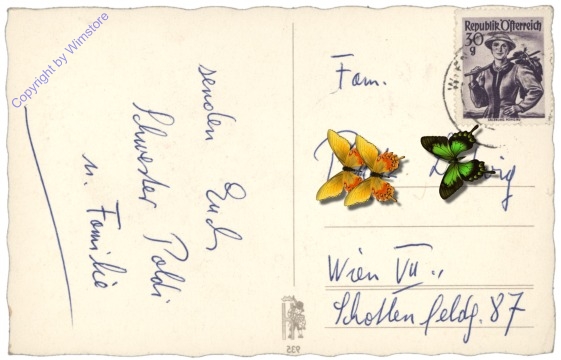 Copyright by Wimstore
senden Euch
Schwester Poldi
u. Familie
Republik Österreich
30
g
Fam.
Wien VII.,
Schottenfeldg. 87
935